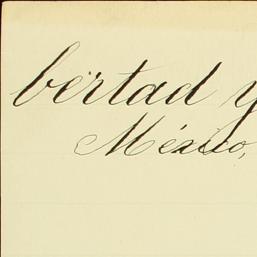 bertad y
México,